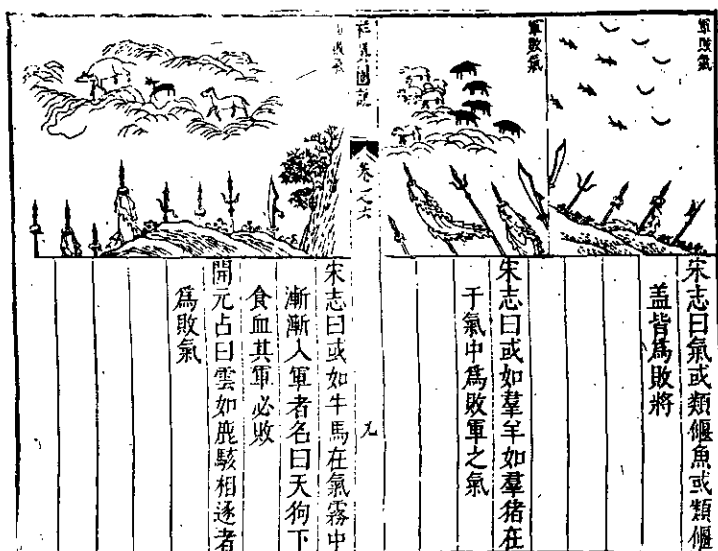 軍敗氣
宋志曰氣或類偃魚或類偃
盖皆爲敗將
軍敗氣
宋志曰或如羣羊如羣猪在
于氣中爲敗軍之氣
祥異圖説
卷之六
宋志曰或如牛馬在氣霧中
漸漸入軍者名曰天狗下
食血其軍必敗
開元占曰雲如鹿駭相逐者
爲敗氣